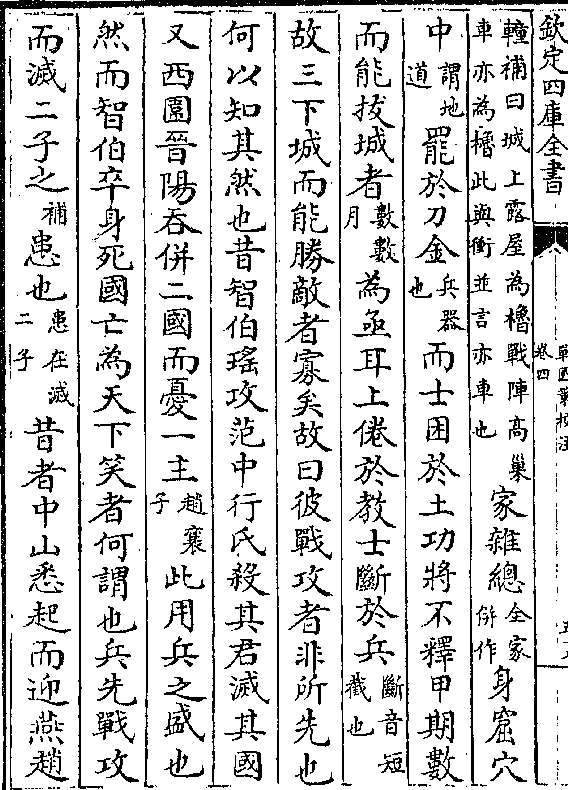 欽定四庫全書
戰國策校注
卷四
轀補曰城上露屋為櫓戰陣高巢
車亦為櫓此與衝並言亦車也
家雜總全家併作身窟穴
中謂地道罷於刀金兵器也而士困於土功將不釋甲期數
而能拔城者數數月為亟耳上倦於教士斷於兵斷音短截也
故三下城而能勝敵者寡矣故曰彼戰攻者非所先也
何以知其然也昔智伯瑤攻范中行氏殺其君滅其國
又西圍晉陽吞併二國而憂一主趙襄子此用兵之盛也
然而智伯卒身死國亡為天下笑者何謂也兵先戰攻
而滅二子之補患也患在滅二子昔者中山悉起而迎燕趙